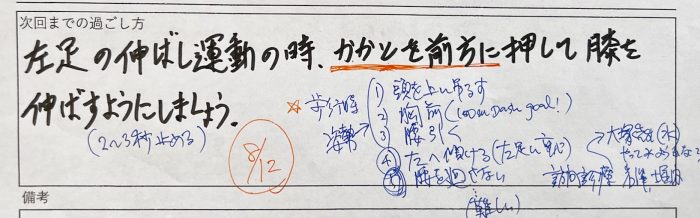 次回までの過ごし方
左足の伸ばし運動の時、かかとを前方に押して膝を
伸ばすようにしましょう。
(2〜3秒止める)
8/12
☆ 歩行時
姿勢
(1) 頭を上に吊るす
(2) 胸前 (100m Dash goal!)
(3) 腰引く
(4) 左へ傾ける (左足に重心)
腰を回さない
(難しい)
訪問診療
備考